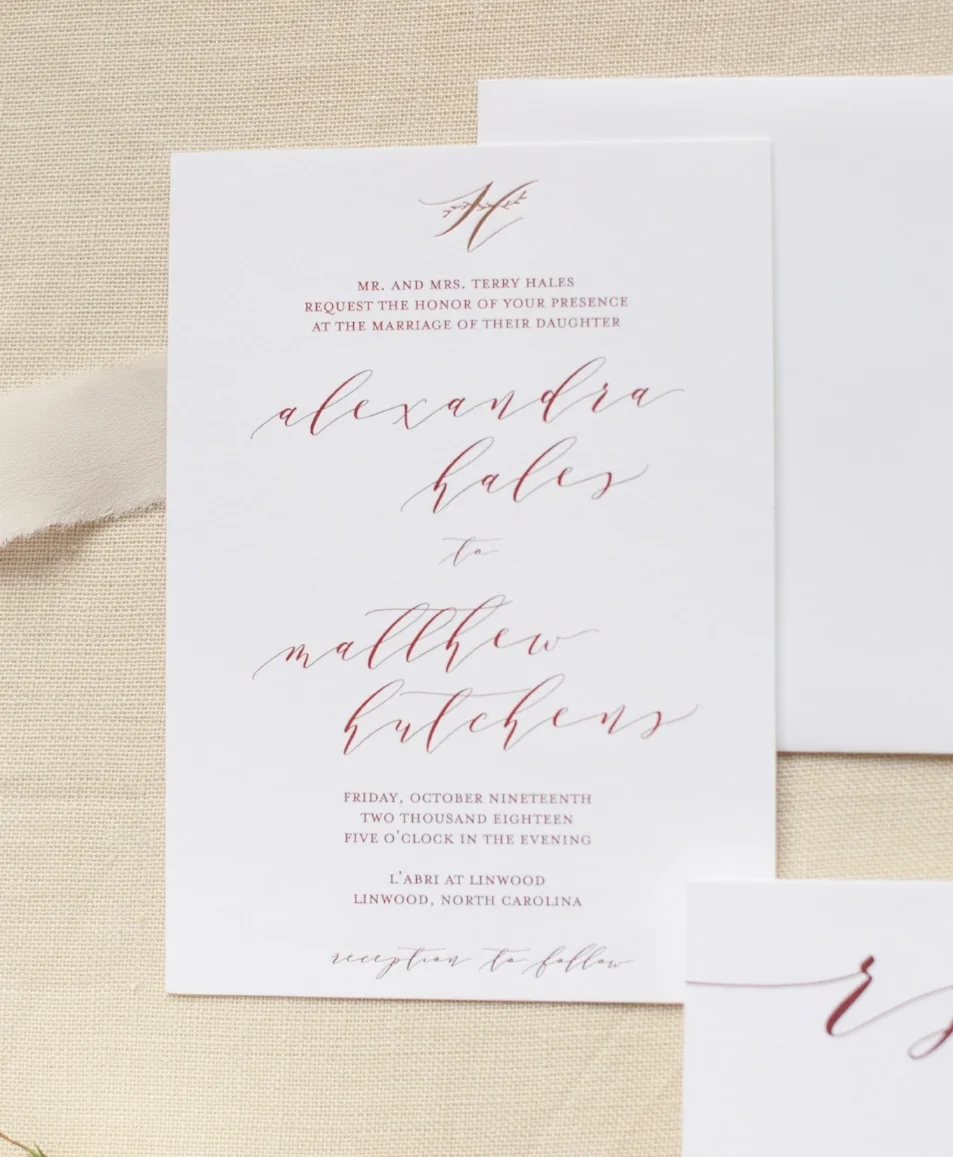 H
MR. AND MRS. TERRY HALES
REQUEST THE HONOR OF YOUR PRESENCE
AT THE MARRIAGE OF THEIR DAUGHTER
alexandra
hales
to
matthew
hutchens
FRIDAY, OCTOBER NINETEENTH
TWO THOUSAND EIGHTEEN
FIVE O'CLOCK IN THE EVENING
L'ABRI AT LINWOOD
LINWOOD, NORTH CAROLINA
reception to follow
rs